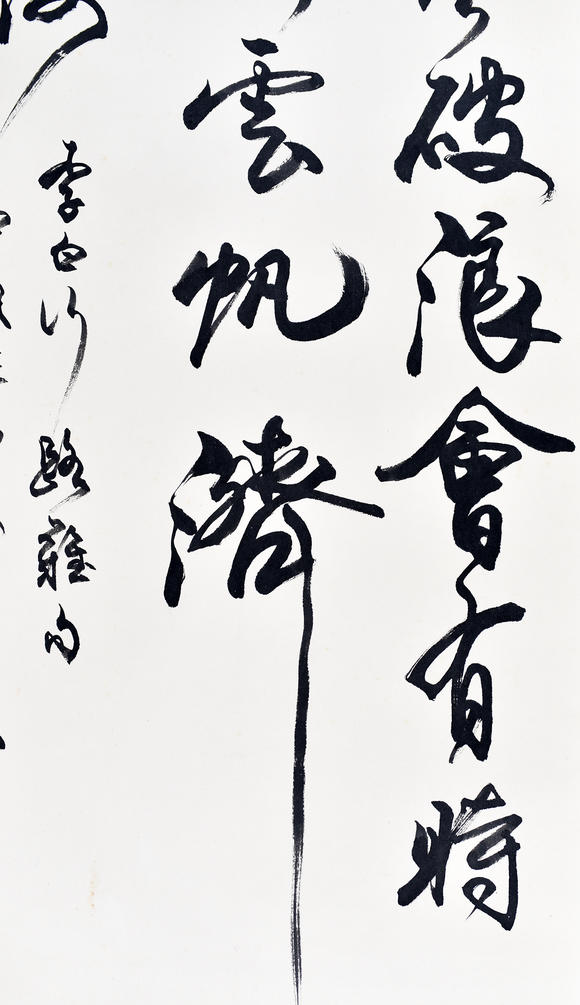 破浪會有時
雲帆濟
李白行路難句